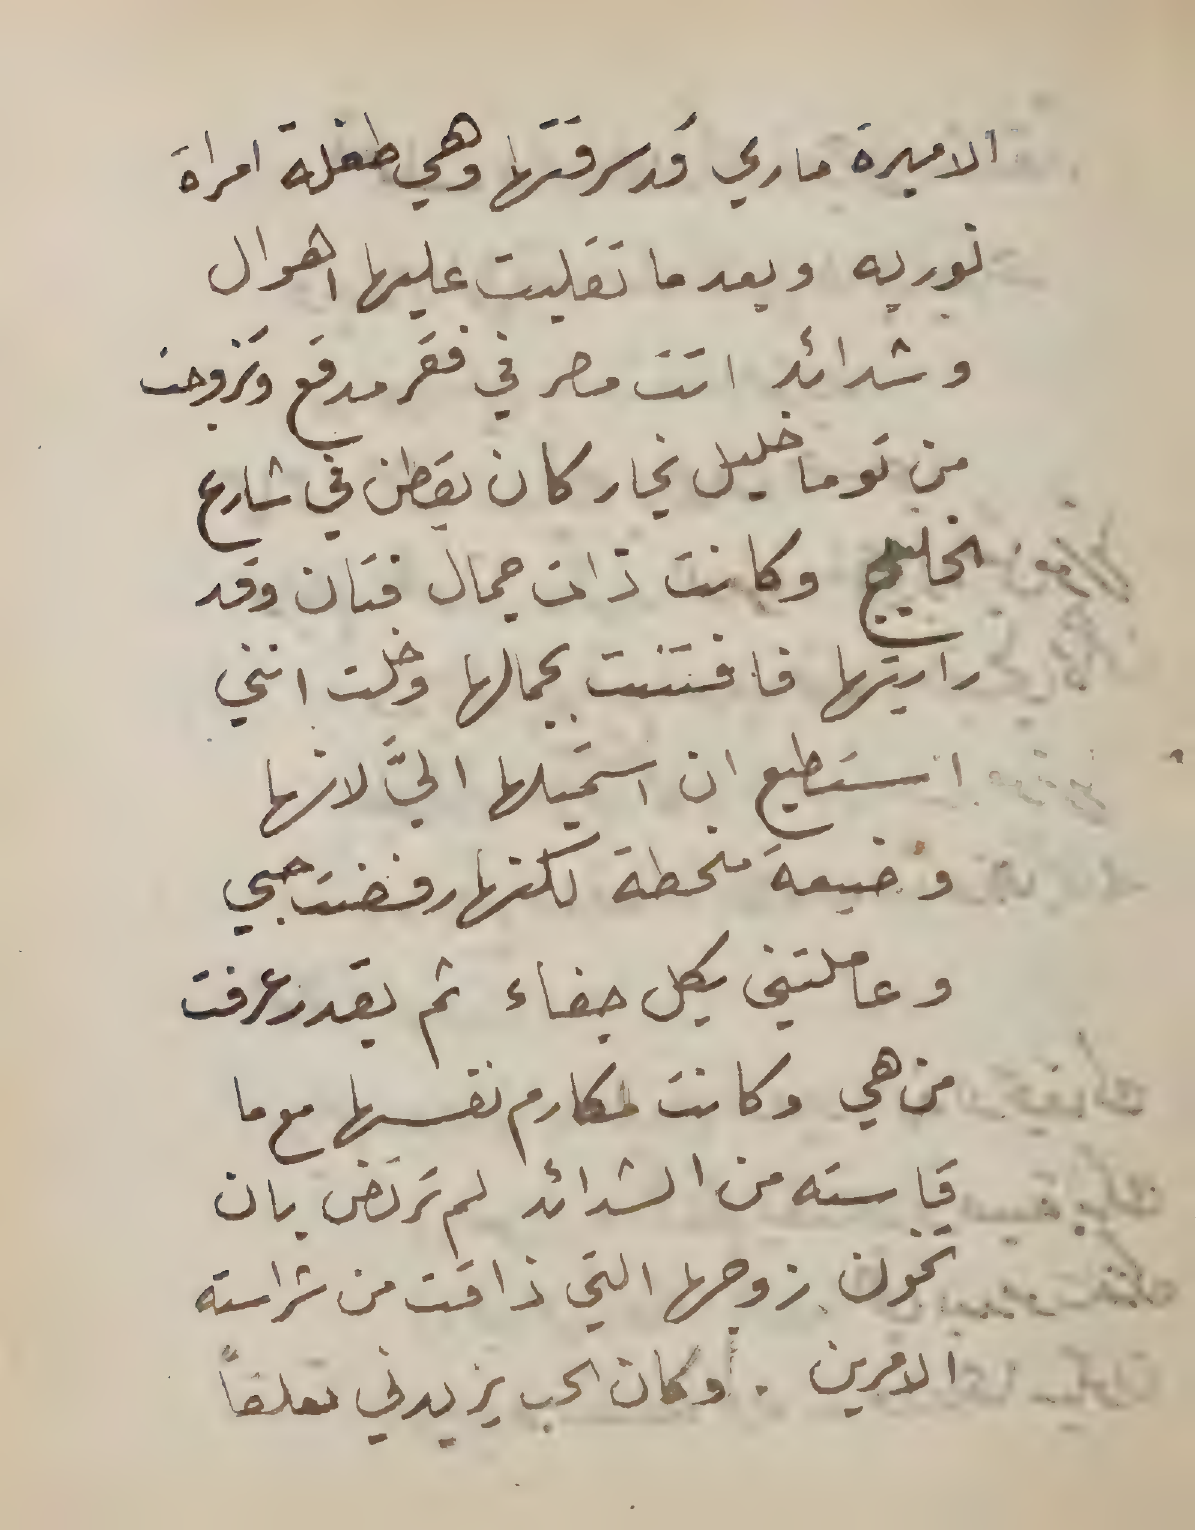 الاميرة ماري قد سرقتها وهي طفلة امراة
نوريه وبعد ما تقلبت عليها اهوال
وشدائد اتت مصر في فقر مدقع وتزوجت
من توما خليل نجار كان يقطن في شارع
الخليج وكانت ذات جمال فتان وقد
رايتها فافتتنت بجمالها وخلت انني
استطيع ان استميلها اليَّ لانها
وضيعة منحطة لكنها رفضت حبي
وعاملتني بكل جفاء ثم بعد عرفت
من هي وكانت لمكارم نفسها مع ما
قاسته من الشدائد لم ترتض بان
تخون زوجها التي ذاقت من شراسته
الامرين . وكان الحب يزيدني تعلقاً